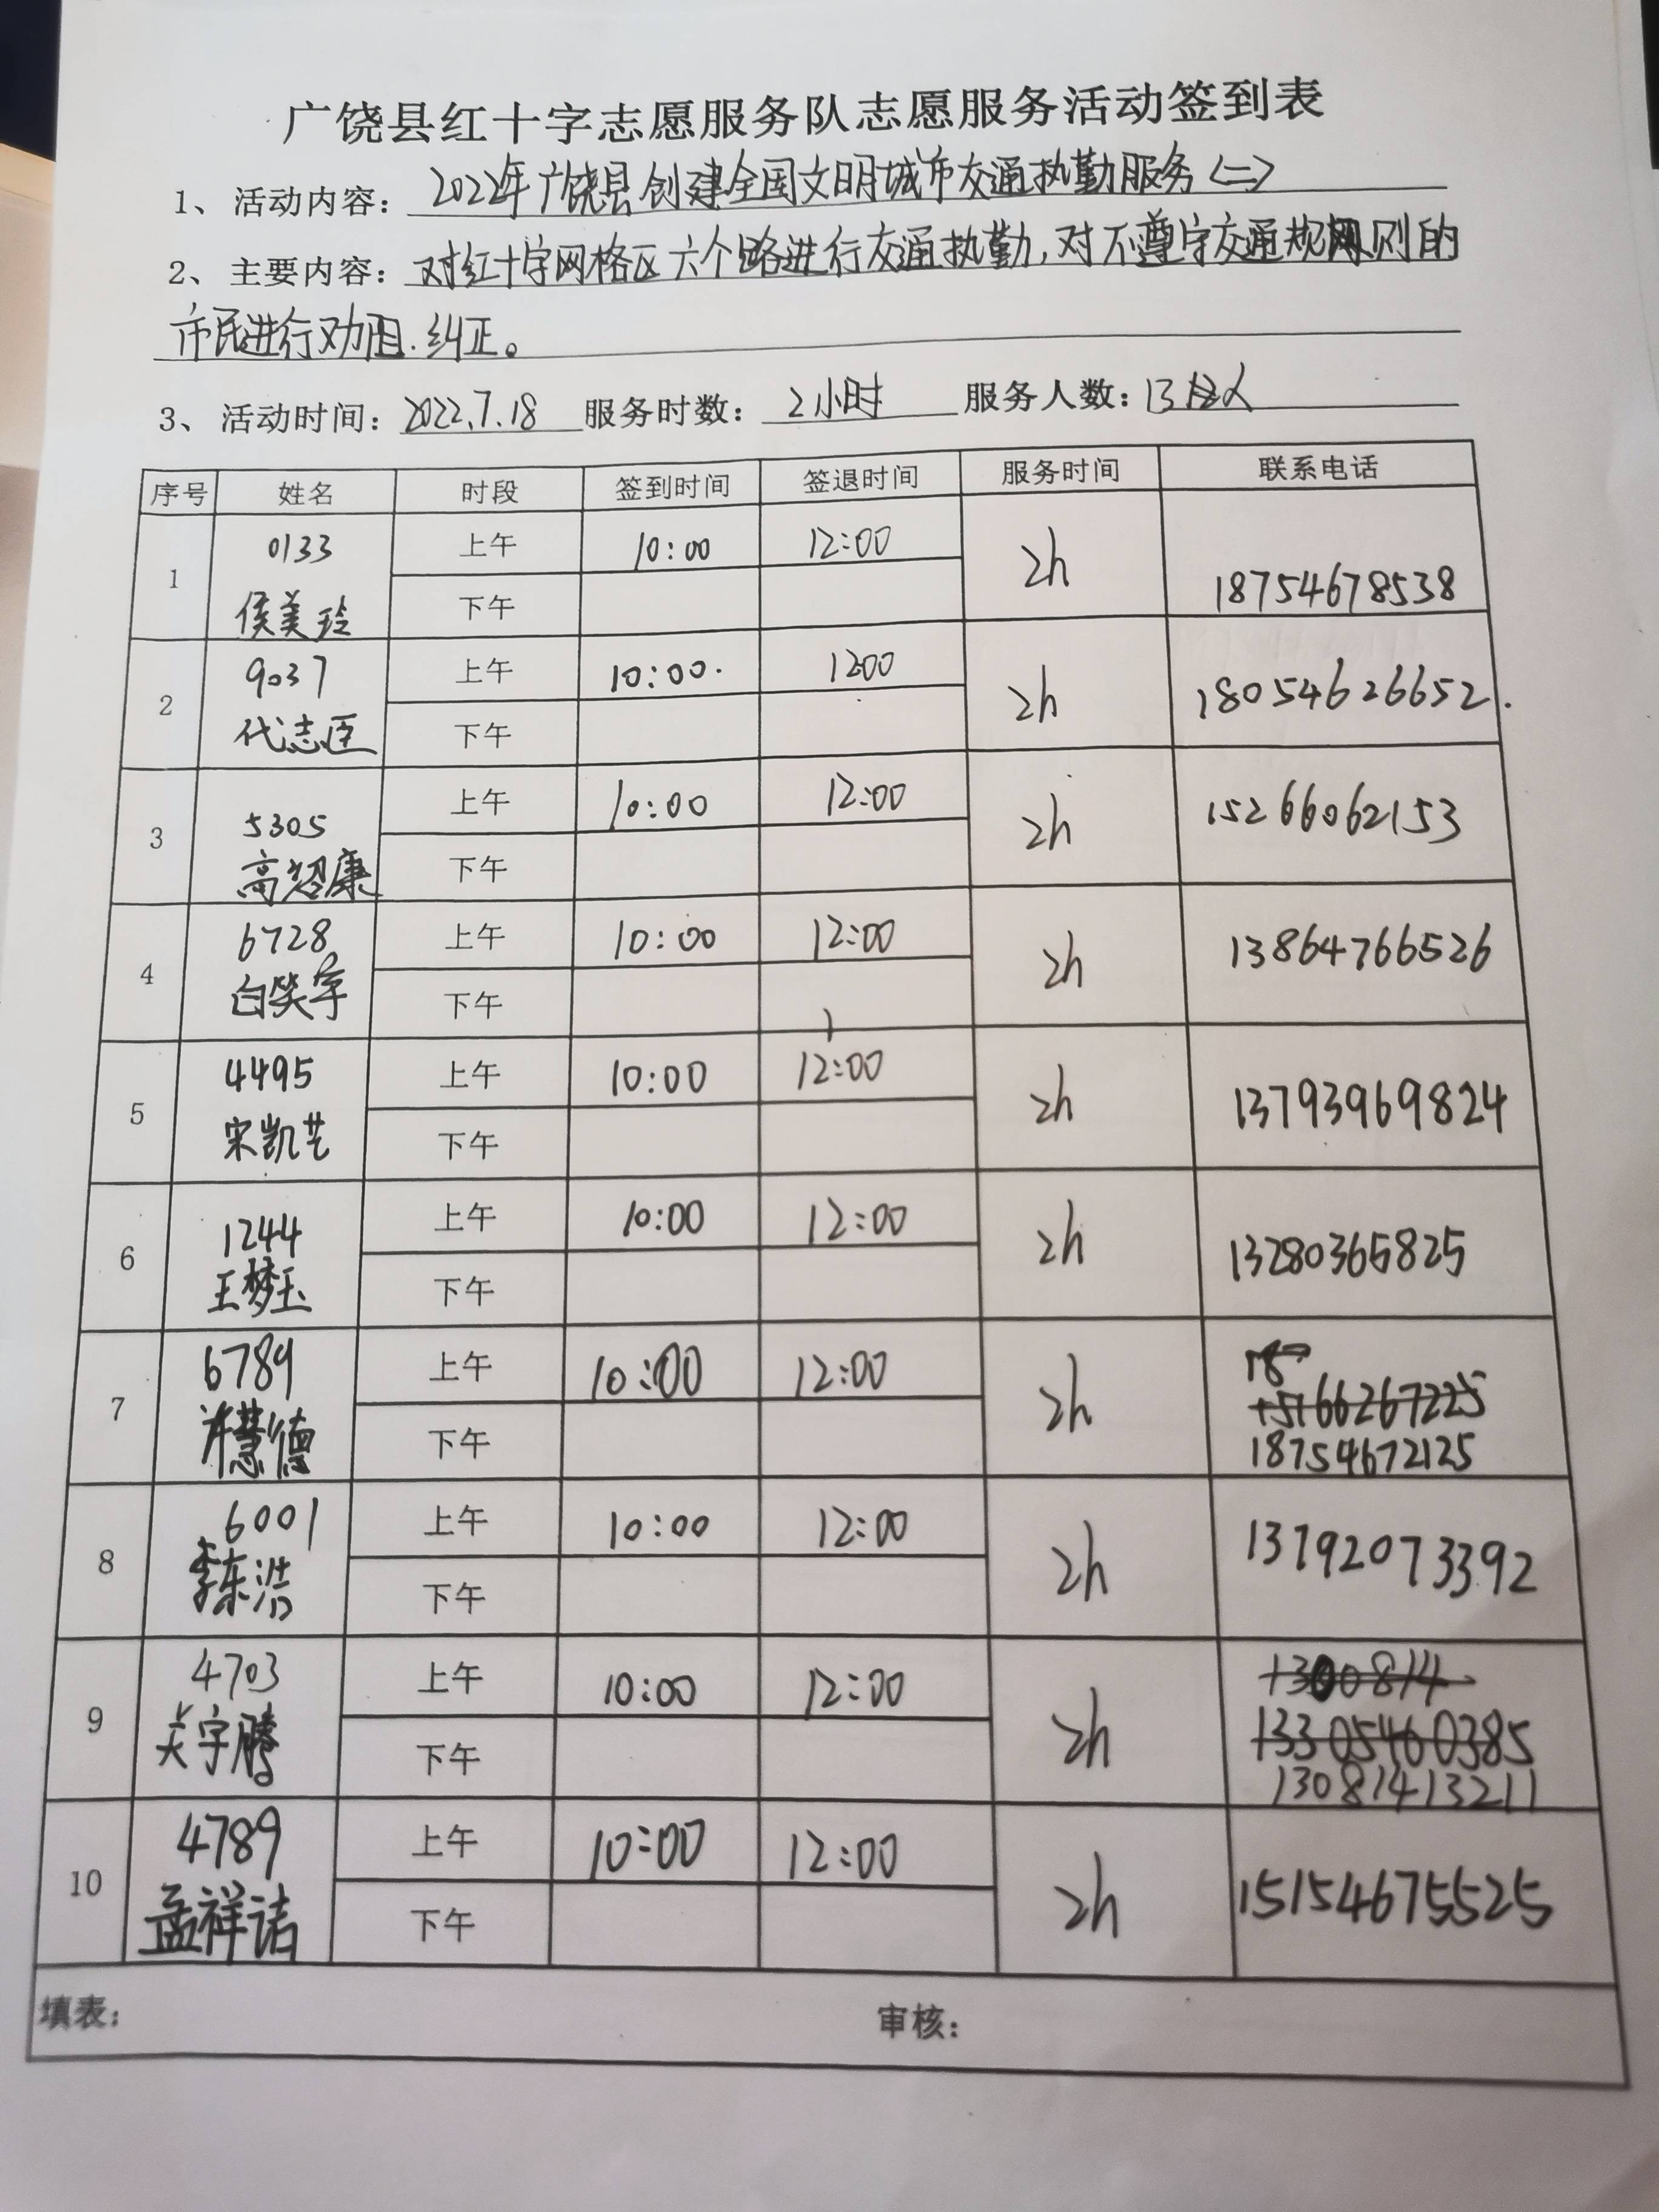 广饶县红十字志愿服务队志愿服务活动签到表
1、活动内容: 2022年广饶县创建全国文明城市交通执勤服务<二>
2、主要内容: 对红十字网格区六个路进行交通执勤,对不遵守交通规则的
市民进行劝阻.纠正。
3、活动时间: 2022.7.18 服务时数: 2小时 服务人数: 13人
序号 姓名 时段 签到时间 签退时间 服务时间 联系电话
1 0133 侯美玲 上午 10:00 12:00 2h 18754678538
下午
2 9037 代志臣 上午 10:00. 1200 2h 18054626652.
下午
3 5305 高超康 上午 10:00 12:00 2h 15266062153
下午
4 6728 白笑宇 上午 10:00 12:00 2h 13864766526
下午
5 4495 宋凯艺 上午 10:00 12:00 2h 13793969824
下午
6 1244 王梦玉 上午 10:00 12:00 2h 13280365825
下午
7 6789 许慧德 上午 10:00 12:00 2h 15166267225
下午 18754672125
8 6001 李东浩 上午 10:00 12:00 2h 13792073392
下午
9 4703 关宇腾 上午 10:00 12:00 2h 1300814
13305460385
下午 13081413211
10 4789 孟祥诘 上午 10:00 12:00 2h 15154675525
下午
填表: 审核: